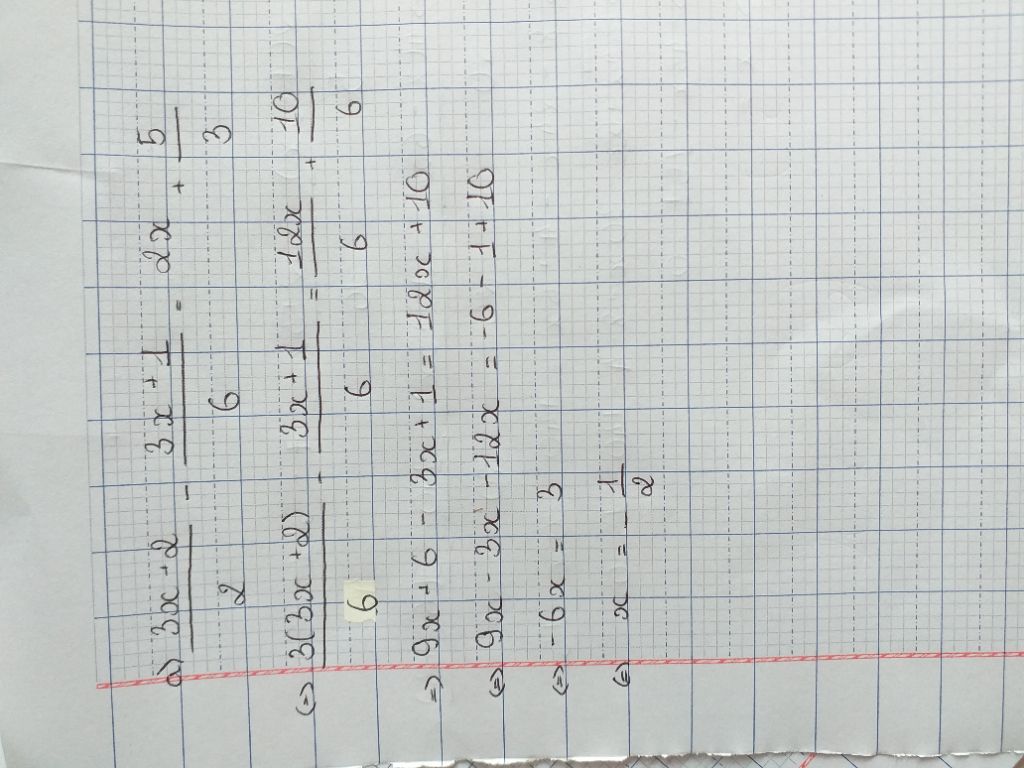 a) (3x+2)/2 - (3x+1)/6 = 2x + 5/3
(=) 3(3x+2)/6 - (3x+1)/6 = 12x/6 + 10/6
=) 9x+6 - 3x+1 = 12x+10
(=) 9x - 3x - 12x = -6 - 1 + 10
(=) -6x = 3
(=) x = -1/2